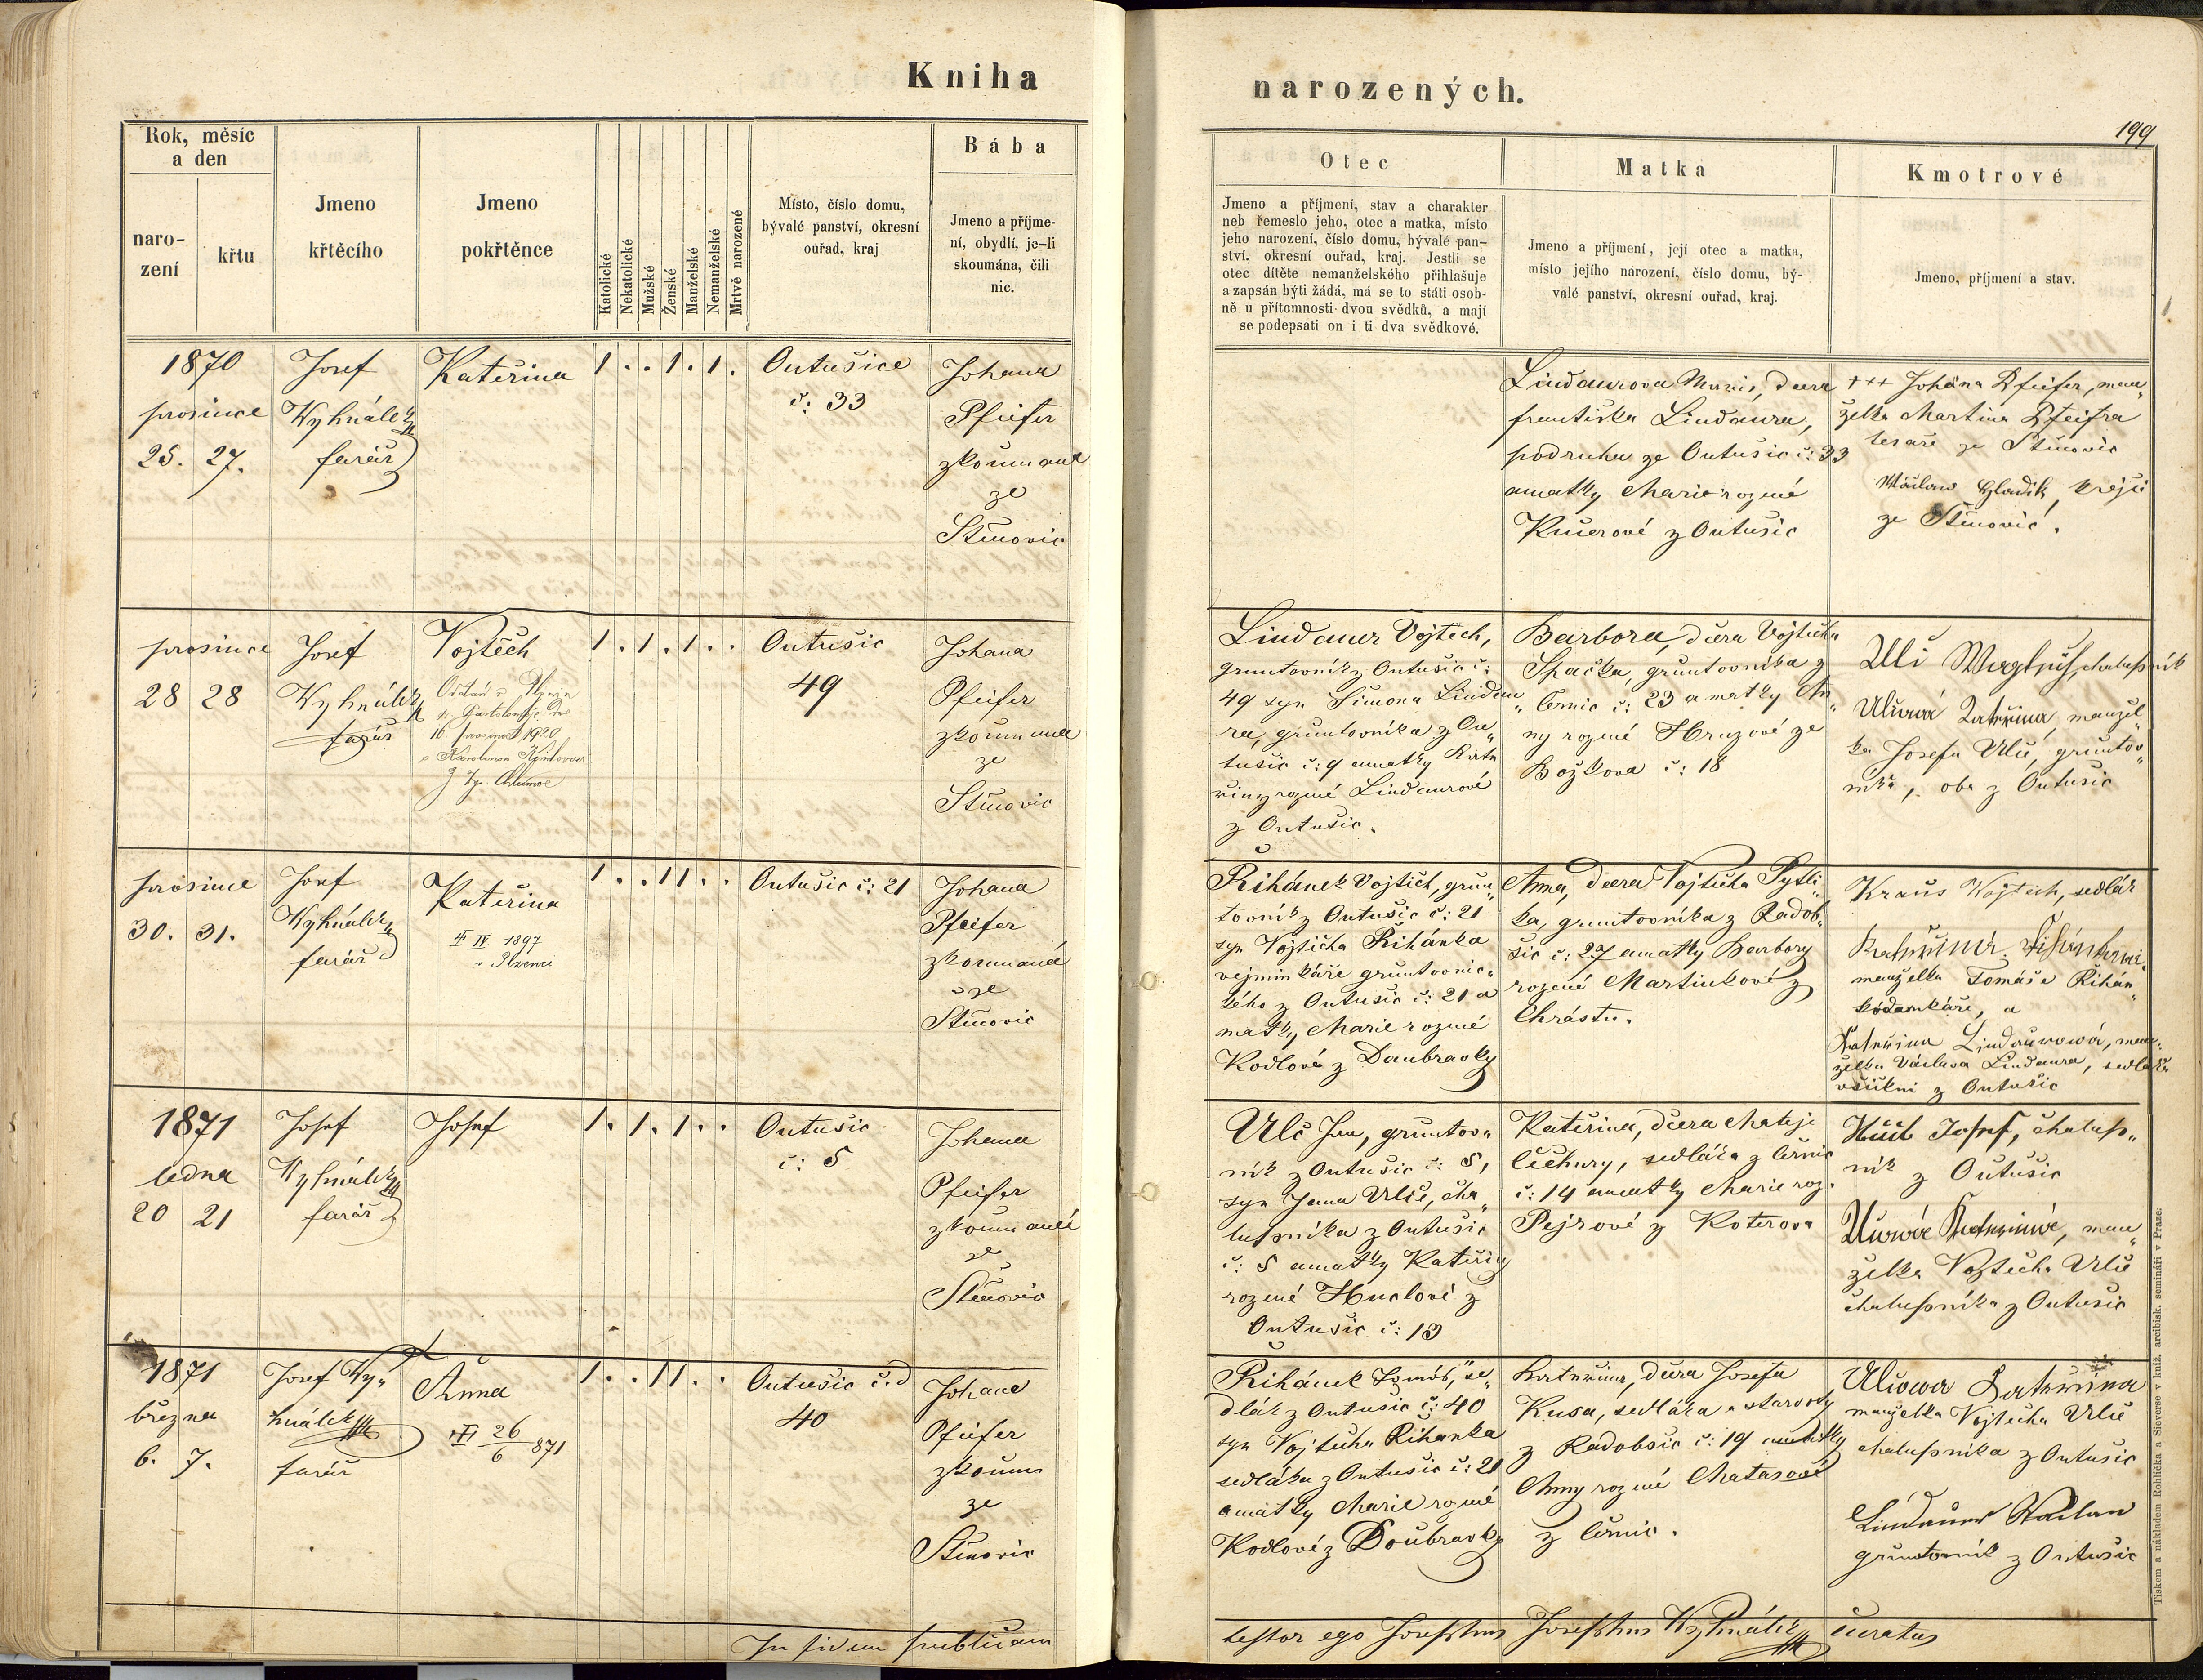 Kniha
narozených.
199
Rok, měsíc
a den
naro-
zení
křtu
Jmeno
křtěcího
Jmeno
pokřtěnce
Katolické
Nekatolické
Mužské
Ženské
Manželské
Nemanželské
Mrtvě narozené
Místo, číslo domu,
bývalé panství, okresní
ouřad, kraj
Bába
Jmeno a příjme-
ní, obydlí, je-li
skoumána, čili
nic.
Otec
Jmeno a příjmení, stav a charakter
neb řemeslo jeho, otec a matka, místo
jeho narození, číslo domu, bývalé pan-
ství, okresní ouřad, kraj. Jestli se
otec dítěte nemanželského přihlašuje
a zapsán býti žádá, má se to státi osob-
ně u přítomnosti dvou svědků, a mají
se podepsati on i ti dva svědkové.
Matka
Jmeno a příjmení, její otec a matka,
místo jejího narození, číslo domu, bý-
valé panství, okresní ouřad, kraj.
Kmotrové
Jmeno, příjmení a stav.
1870
prosince
25. 27.
Josef
Wyhnálek
farář
Kateřina
1 . . 1 . 1 .
Outušice
č: 33
Johana
Pfeifer
zkoumaná
ze
Stěnovic
Lindaurova Marie, dcera
františka Lindaura,
podruha ze Outušic č: 33
a matky Marie rozené
Kučerové z Outušic
+++ Johana Pfeifer, man„
želka Martina Pfeifra
tesaře ze Stěnovic
Wáclaw Hladik, krejčí
ze Stěnovic.
prosince
28 28
Josef
Wyhnálek
farář
Vojtěch
Oddán v Plzni
sv. Bartoloměje dne
16. prosince 1920
s Karolinou
1 . 1 . 1 . .
Outušic
49
Johana
Pfeifer
zkoumaná
ze
Stěnovic
Lindauer Vojtěch,
gruntovník z Outušic č:
49 syn Šimona Lindau„
ra, gruntovníka z Ou„
tušic č: 9 a matky Kate
řiny rozené Lindaurové
z Outušic.
Barbora, dcera Vojtěcha
Špačka, gruntovníka z
Černic č: 23 a matky An„
ny rozené Hruzové ze
Božkova č: 18
Ulč Wogtěch, chalupník
Ulčová Kateřina, manžel„
ka Josefa Ulče, gruntov„
níka, oba z Outušic
prosince
30. 31.
Josef
Wyhnálek
farář
Kateřina
IV 1897
v Plzenci
1 . . 1 1 . .
Outušic č: 21
Johana
Pfeifer
zkoumaná
ze
Stěnovic
Řihánek Vojtěch, grun„
tovník z Outušic č: 21
syn Vojtěcha Řihánka
vejminkáře gruntovnic„
kého z Outušic č: 21 a
matky Marie rozené
Kodlové z Doubravky
Anna, dcera Vojtěcha Pytlí„
ka, gruntovníka z Radob„
šic č: 27 a matky Barbory
rozené Martinkové z
Chrástu.
Kraus Wojtěch, sedlák
manželka Tomáše Řihán„
Kateřina Lindaurowá, man„
želka Václava Lindaura, sedláka
všickni z Outušic
1871
ledna
20 21
Josef
Wyhnálek
farář
Josef
1 . 1 . 1 . .
Outušic
č: 5
Johana
Pfeifer
zkoumaná
ze
Stěnovic
Ulč Jan, gruntov„
ník z Outušic č: 5,
syn Jana Ulče, cha„
lupníka z Outušic
č: 5 a matky Kateřiny
rozené Huclové z
Outušic č: 13
Kateřina, dcera Matěje
Čechury, sedláka z Černic
č: 14 a matky Marie roz.
Pejrové z Koterova
Josef, chalup„
ník z Outušic
Ulčová Kateřina, man„
želka Vojtěcha Ulče
chalupníka z Outušic
1871
března
6. 7.
Josef Wy„
hnálek
farář
Anna
26/6 871
1 . . 1 1 . .
Outušic č.
40
Johana
Pfeifer
zkoum
ze
Stěnovic
Řihánek Tomáš, se„
dlák z Outušic č: 40
syn Vojtěcha Řihánka
sedláka z Outušic č: 21
a matky Marie rozené
Kodlové z Doubravky
Kateřina, dcera Josefa
Kusa, sedláka a starosty
z Radobšic č: 19 a matky
Anny rozené Matasové
z Černic.
Ulčowa Kateřina
manželka Vojtěcha Ulče
chalupníka z Outušic
Lindauer Waclaw
gruntovník z Outušic
In fidem publicam
testor ego Josephus Josephus Wyhnálek curatus
Tiskem a nákladem Rohlíčka a Sieverse v kníž. arcibisk. semináři v Praze.